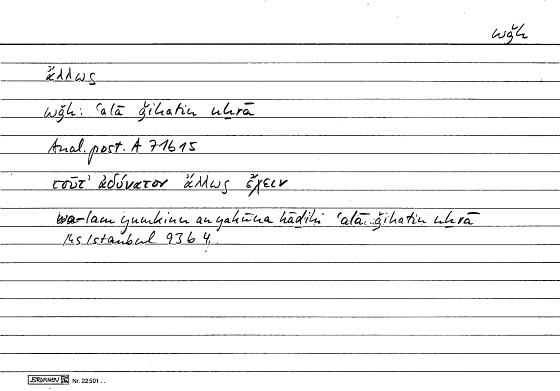 wǧh
ἄλλως
wǧh: ʿalā ǧihatin uḫrā
Anal. post. A 71b15
τοῦτ' ἀδύνατον ἄλλως ἔχειν
wa-lam yumkinu an yakūna hāḏihi ʿalā ǧihatin uḫrā
Ms Istanbul 93b4.
BRUNNEN Nr. 22501 ..